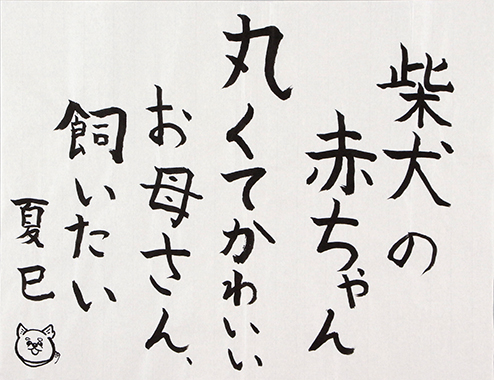 柴犬の
赤ちゃん
丸くてかわいい
お母さん、
飼いたい
夏巳